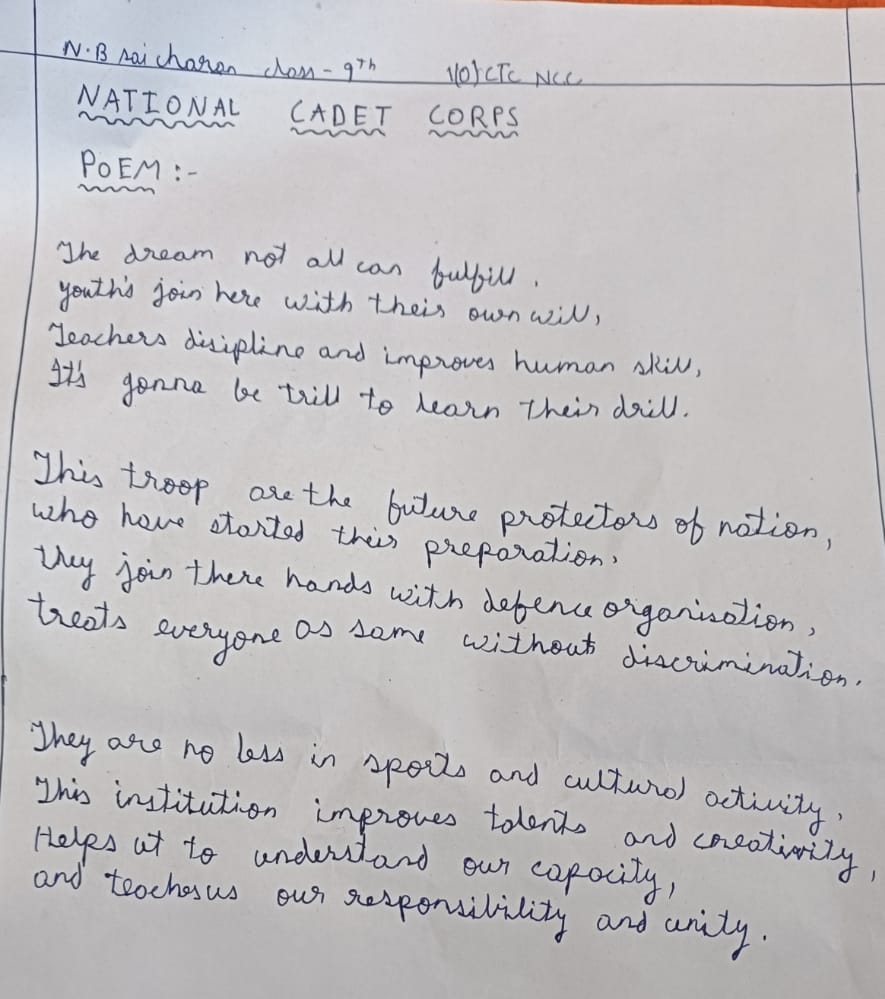 N.B sai charan class - 9th 1(0) CTC NCC
NATIONAL CADET CORPS
POEM :-
The dream not all can fulfill.
youth's join here with their own will,
Teachers disipline and improves human skill,
It's gonna be trill to learn their drill.
This troop are the future protectors of nation,
who have started their preparation.
they join there hands with defence organisation,
treats everyone as same without discrimination.
They are no less in sports and cultural activity,
This institution improves talents and creativity,
Helps ut to understand our capacity,
and teaches us our responsibility and unity.